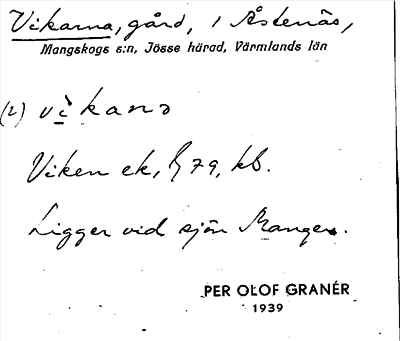 Vikarna, gård, i Åstenäs,
Mangskogs s:n, Jösse härad, Värmlands län
(2) vìkanə
Viken ek, § 79, kb.
Ligger vid sjön Mangen.
PER OLOF GRANÉR
1939